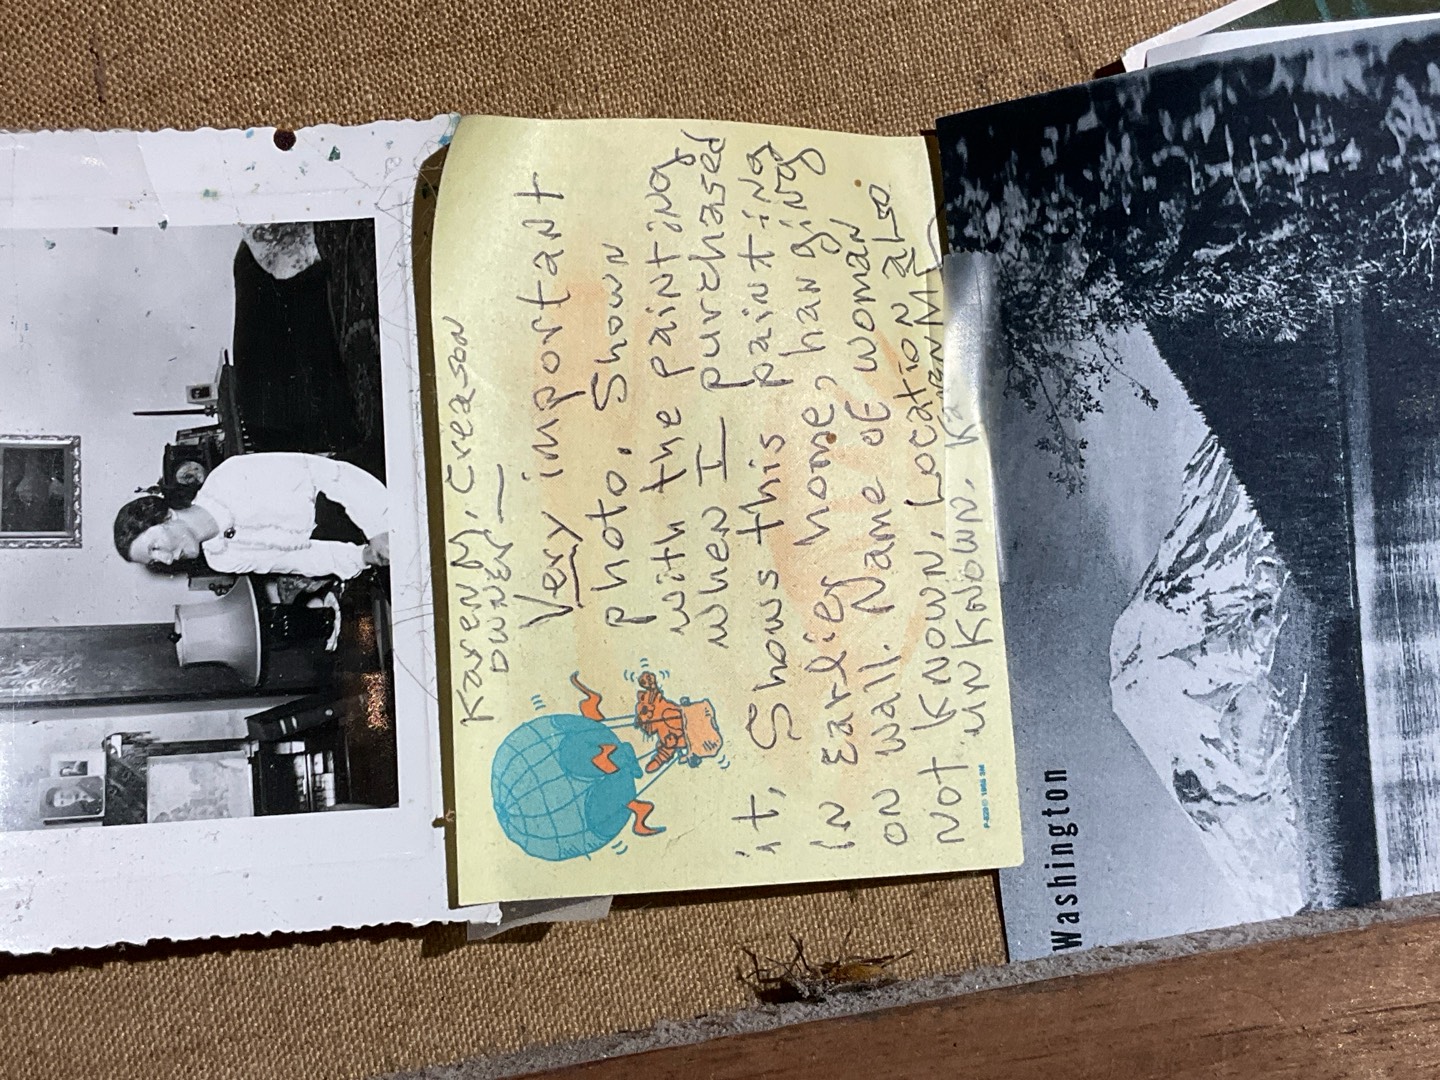 Karen M. Creason
OWNER
Very important
photo. Shown
with the painting
when I purchased
it. Shows this painting
in earlier home, hanging
on wall. Name of woman
not known. Location also
unknown.
P-623 © 1988 3M
Washington